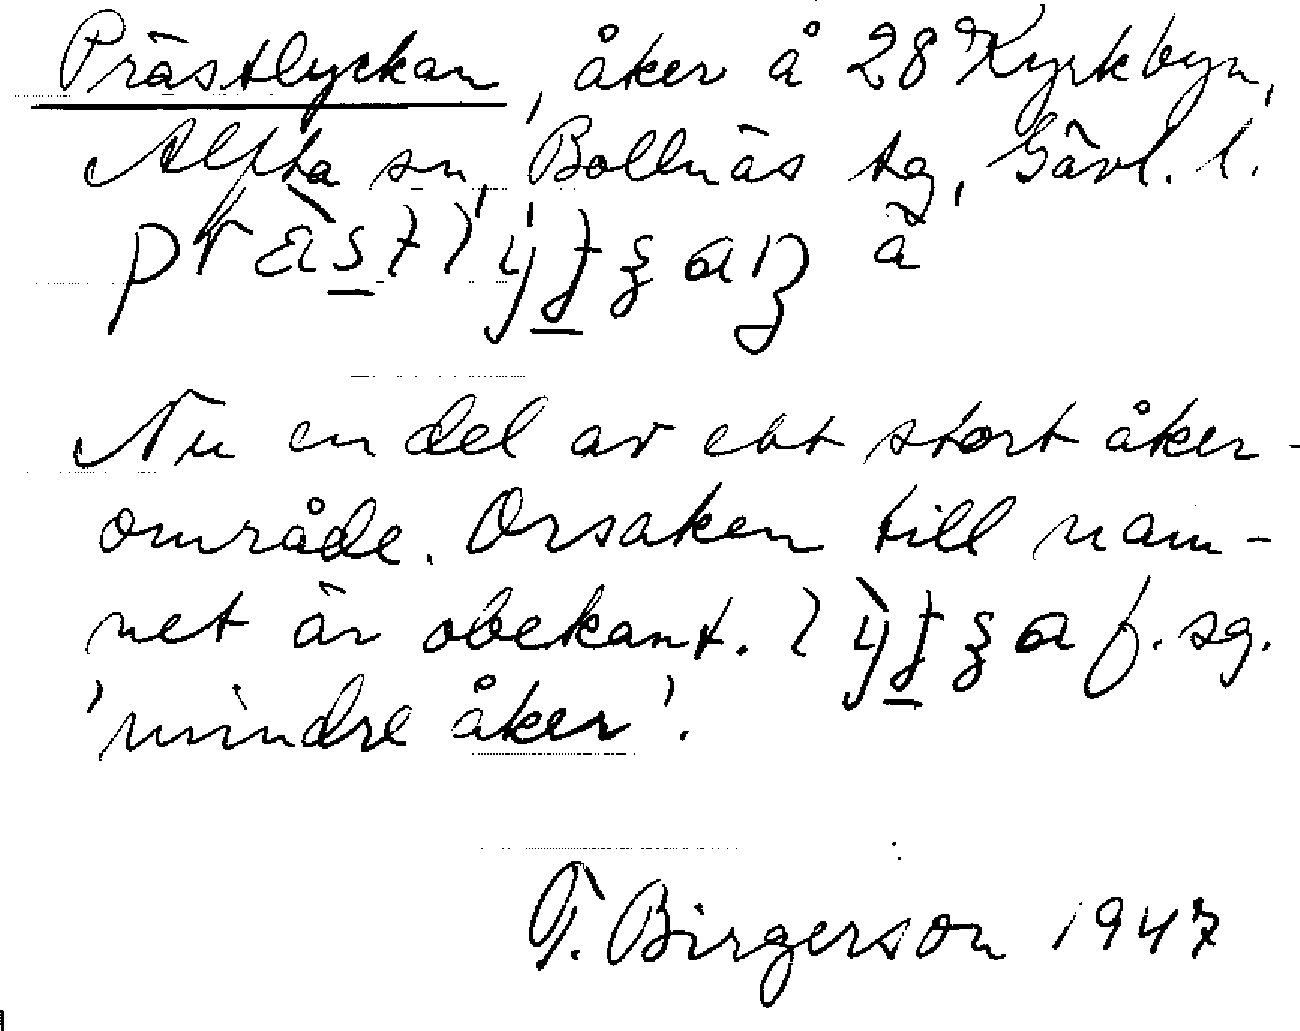 Prästlyckan, åker å 28 Kyrkbyn,
Alfta sn, Bollnäs tg, Gävl. l.
å
Nu en del av ett stort åker-
område. Orsaken till nam-
net är obekant. f. sg.
'mindre åker'.
F. Birgerson 1947